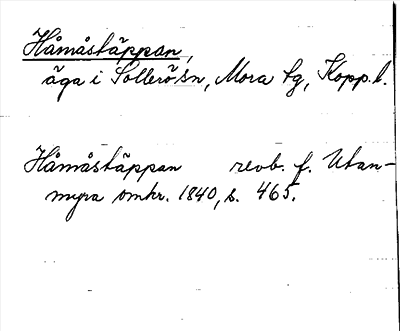 Håmåstäppan,
äga i Sollerö sn, Mora tg, Kopp. l.
Håmåstäppan revb. f. Utan-
myra omkr. 1840, s. 465.